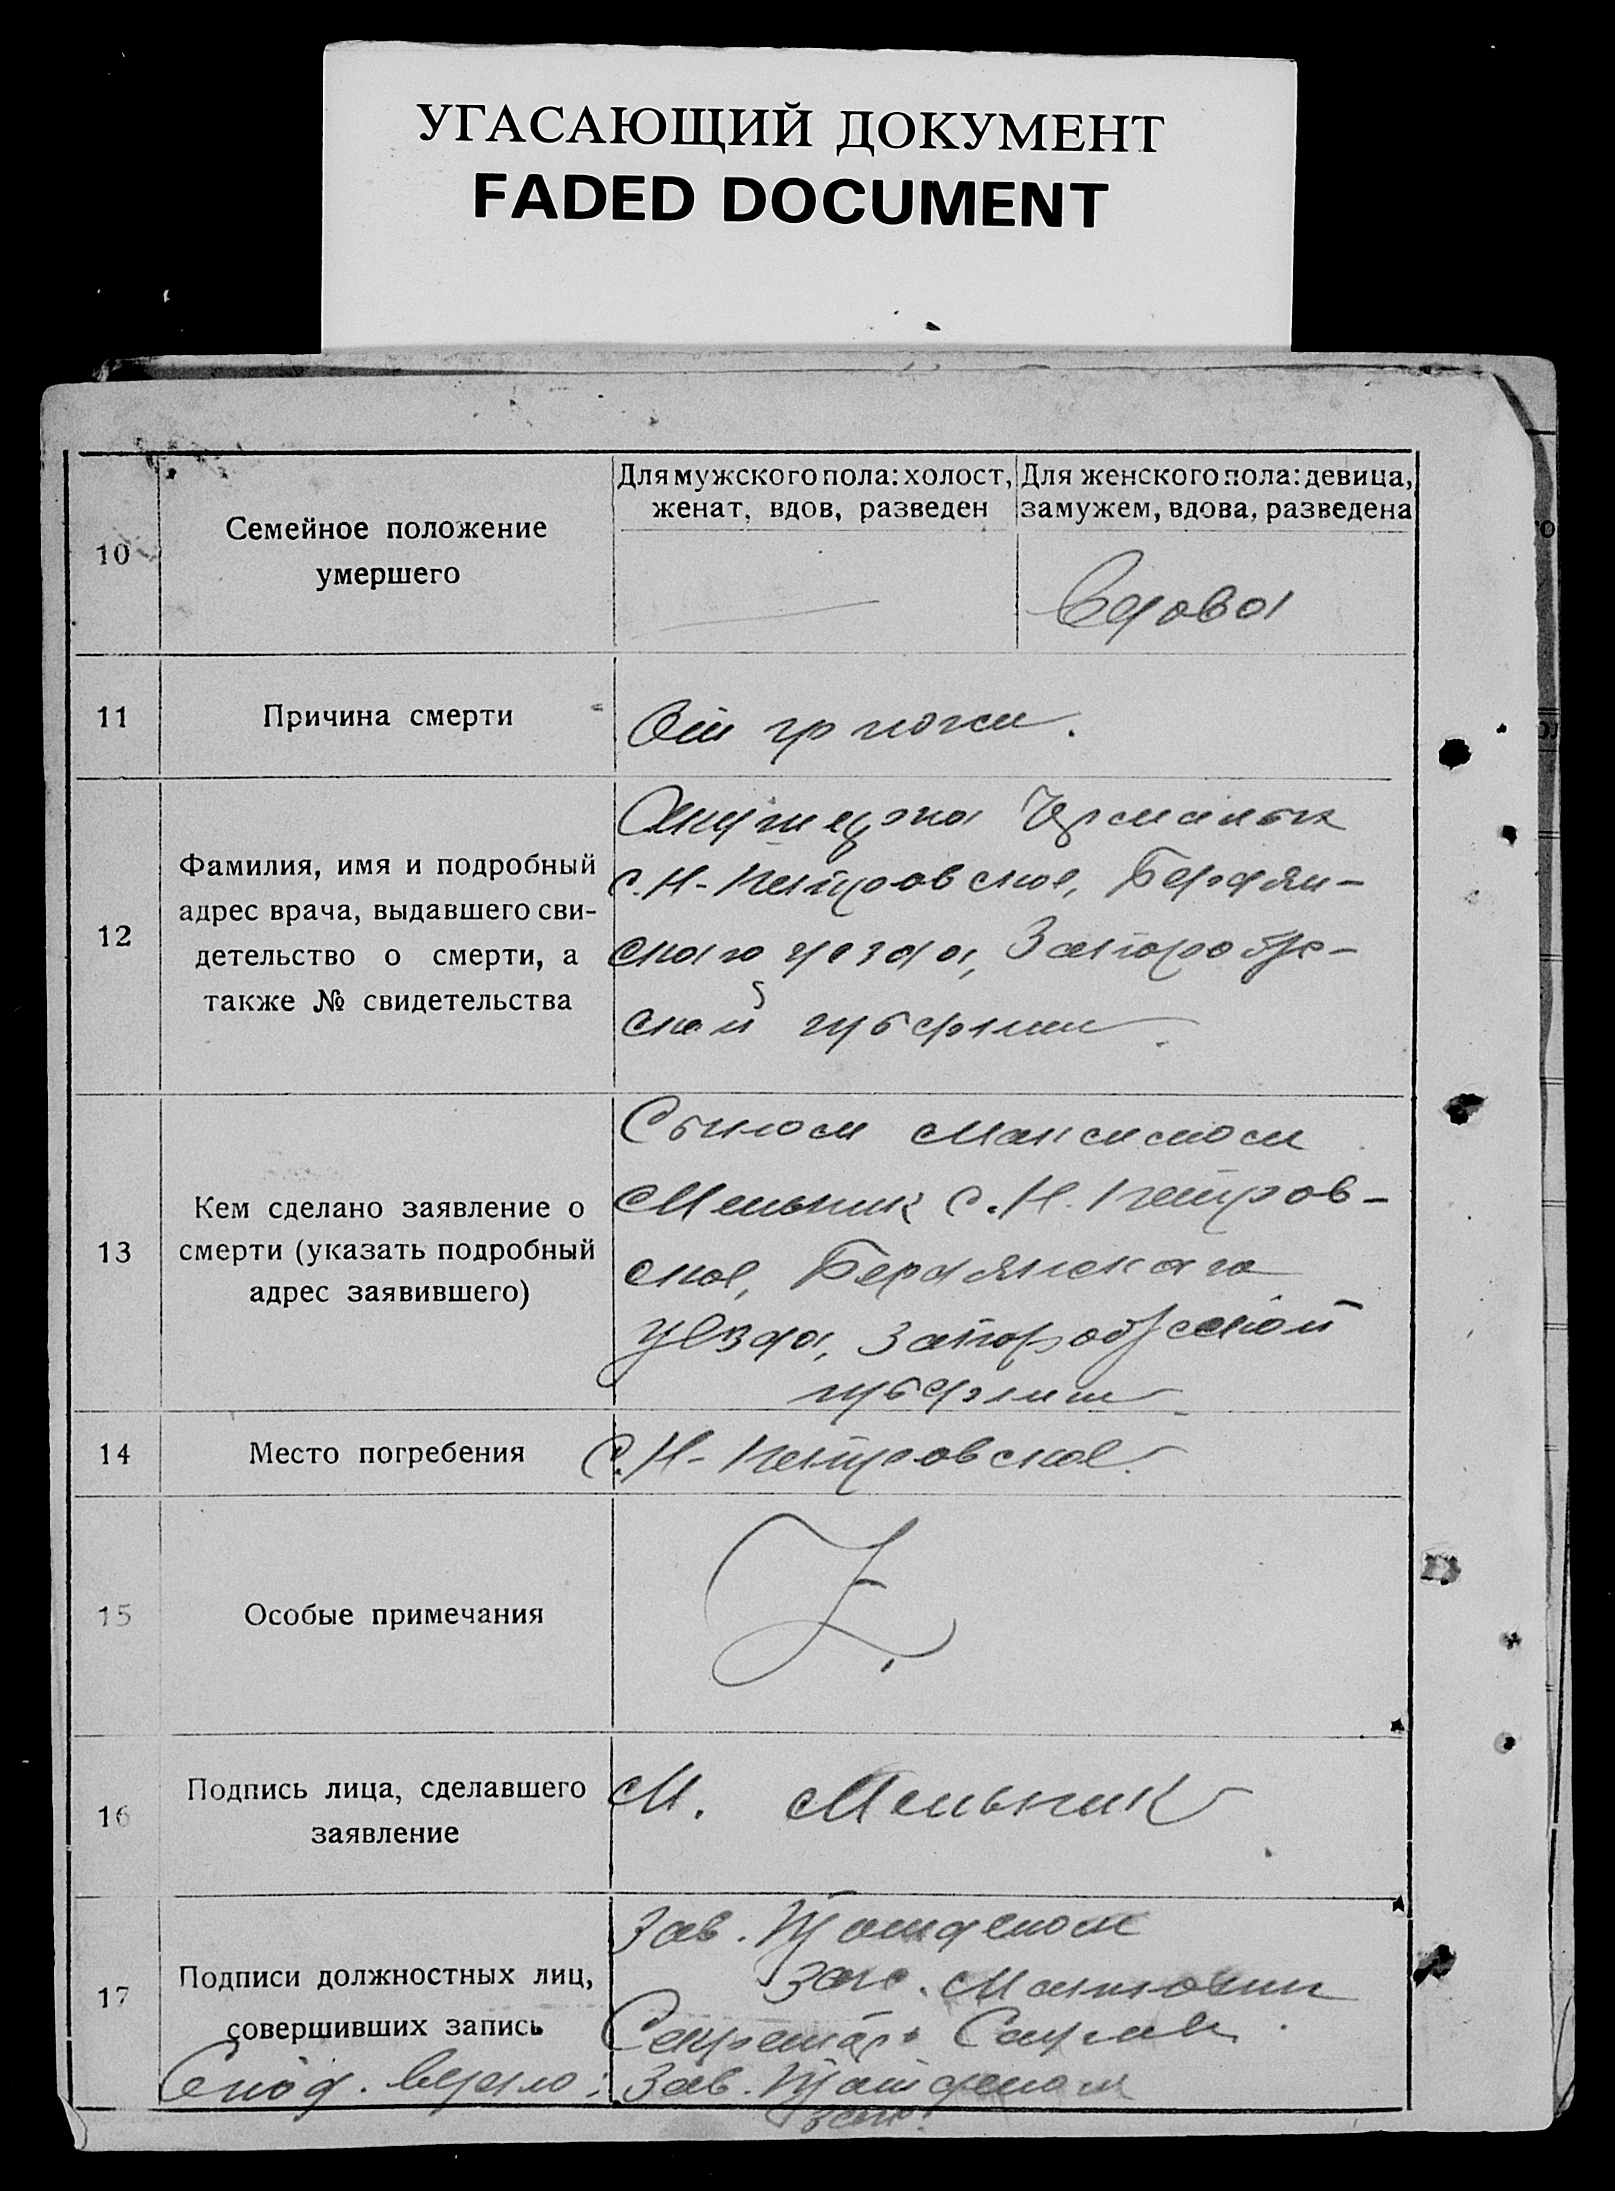 УГАСАЮЩИЙ ДОКУМЕНТ
FADED DOCUMENT
10
Семейное положение
умершего
Для мужского пола: холост,
женат, вдов, разведен
Для женского пола: девица,
замужем, вдова, разведена
Вдова
11
Причина смерти
От грыжи.
12
Фамилия, имя и подробный
адрес врача, выдавшего сви-
детельство о смерти, а
также № свидетельства
Акушерка
с. Н-Петровское, Бердян-
ского уезда, Запорож-
ской губернии
13
Кем сделано заявление о
смерти (указать подробный
адрес заявившего)
Сыном Максимом
Мельник с. Н. Петров-
ское, Бердянского
уезда, Запорожской
губернии
14
Место погребения
с. Н-Петровское.
15
Особые примечания
16
Подпись лица, сделавшего
заявление
М. Мельник
17
Подписи должностных лиц,
совершивших запись
Зав.
Секретарь
верно:
Зав.